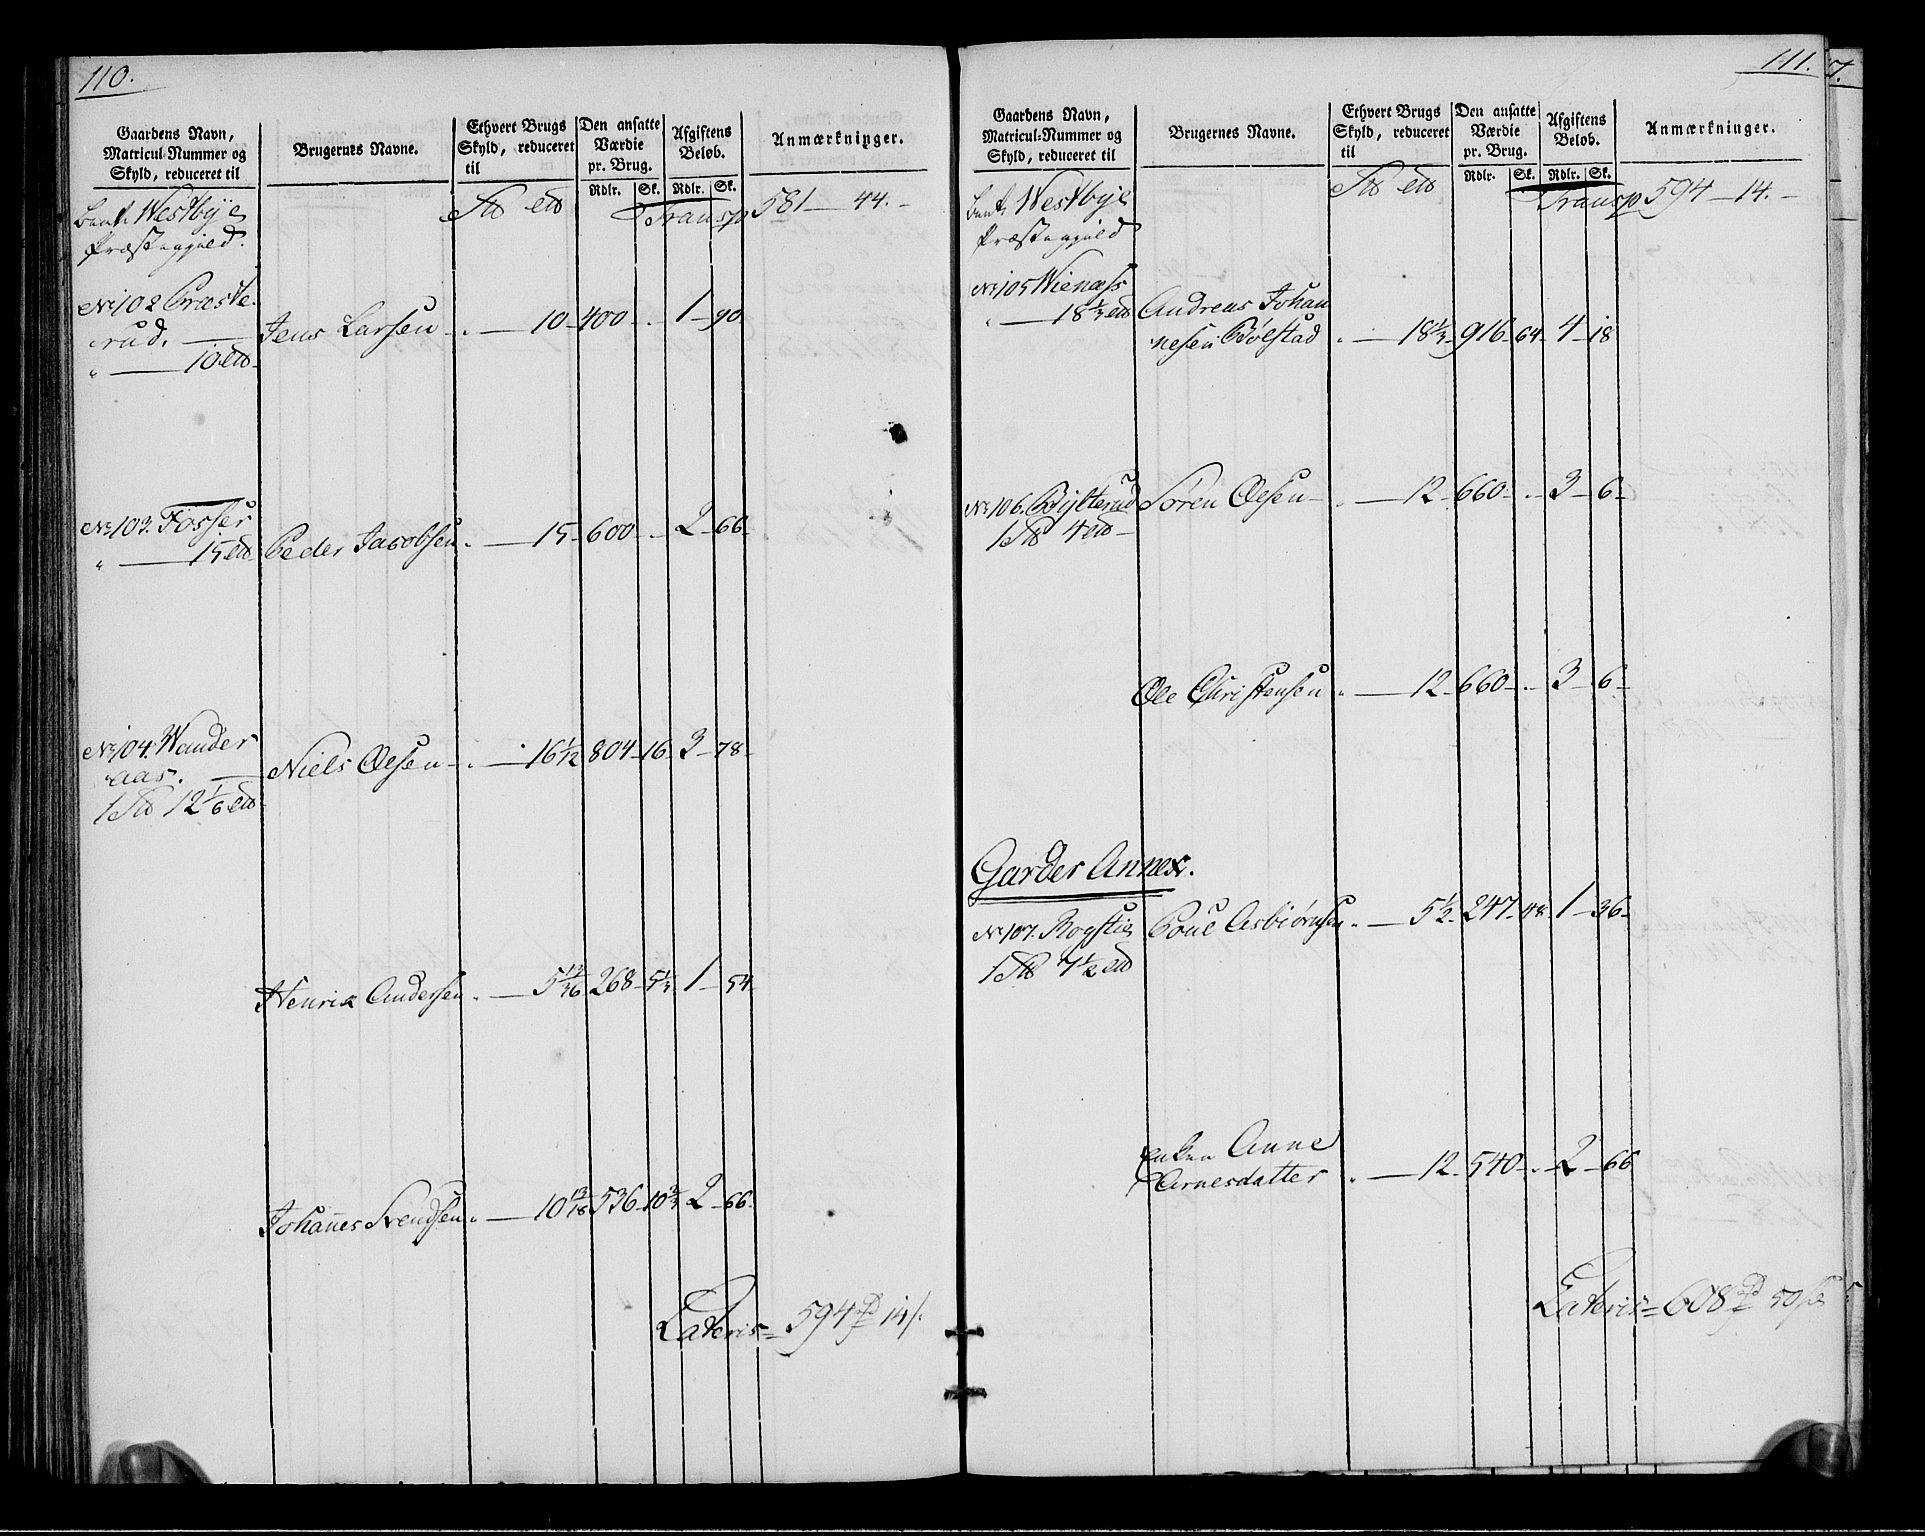 110.
Gaardens Navn, Matricul-Nummer og Skyld, reduceret til
Brugernes Navne.
Ethvert Brugs Skyld, reduceret til
Den ansatte Værdie pr. Brug.
Afgiftens Beløb.
Anmærkninger.
Rdlr. Sk. Rdlr. Sk.
Westbye
Præstegjeld.
Transp 581 — 44. -
No 102 Præste
rud. — Jens Larsen — 10 — 400 — 1 — 90
" — 10
No 103. Fosser
" — 15 Peder Jacobsen — 15 — 600 — 2 — 66
No 104. Wander
aas. — Niels Olsen — 16 1/12 804 — 16 3 — 78
1 12 1/6
Henrik Andersen — 5 13/36 268 — 5 1/3 1 — 54
Johannes Svendsen — 10 13/18 536 — 10 2/3 2 — 66
Lateris = 594 14
111.
Gaardens Navn, Matricul-Nummer og Skyld, reduceret til
Brugernes Navne.
Ethvert Brugs Skyld, reduceret til
Den ansatte Værdie pr. Brug.
Afgiftens Beløb.
Anmærkninger.
Rdlr. Sk. Rdlr. Sk.
Westbye
Præstegjeld
Transp 594 — 14. -
No 105 Wienæss
" — 18 1/3 Andreas Johan
nesen Bølstad — 18 1/3 916 — 64 4 — 18
No 106. Bylterud Søren Olsen — 12 — 660 — 3 — 6
1 4
Ole Christensen — 12 — 660 — 3 — 6
Garder Annex.
No 107. Rogstie Poul Asbiørnsen — 5 1/2 247 — 48 1 — 36
1 7 1/2
Enken Anne
Arnesdatter — 12 — 540 — 2 — 66
Lateris = 608 50